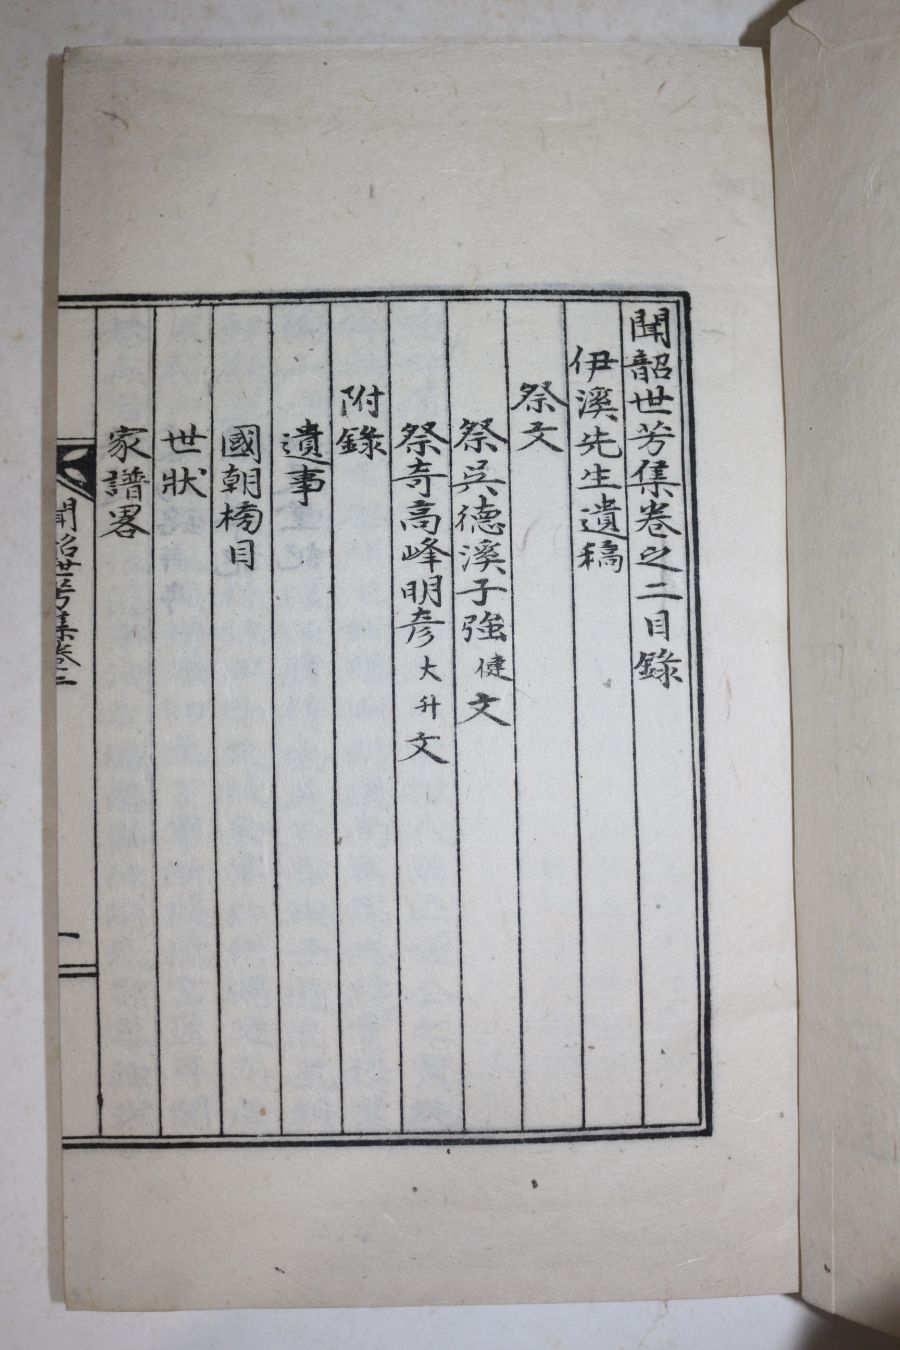 聞韶世芳集卷之二目錄
伊溪先生遺稿
祭文
祭吳德溪子強健文
祭奇高峰明彦大升文
附錄
遺事
國朝榜目
世狀
家譜畧
聞韶世芳集卷二
一